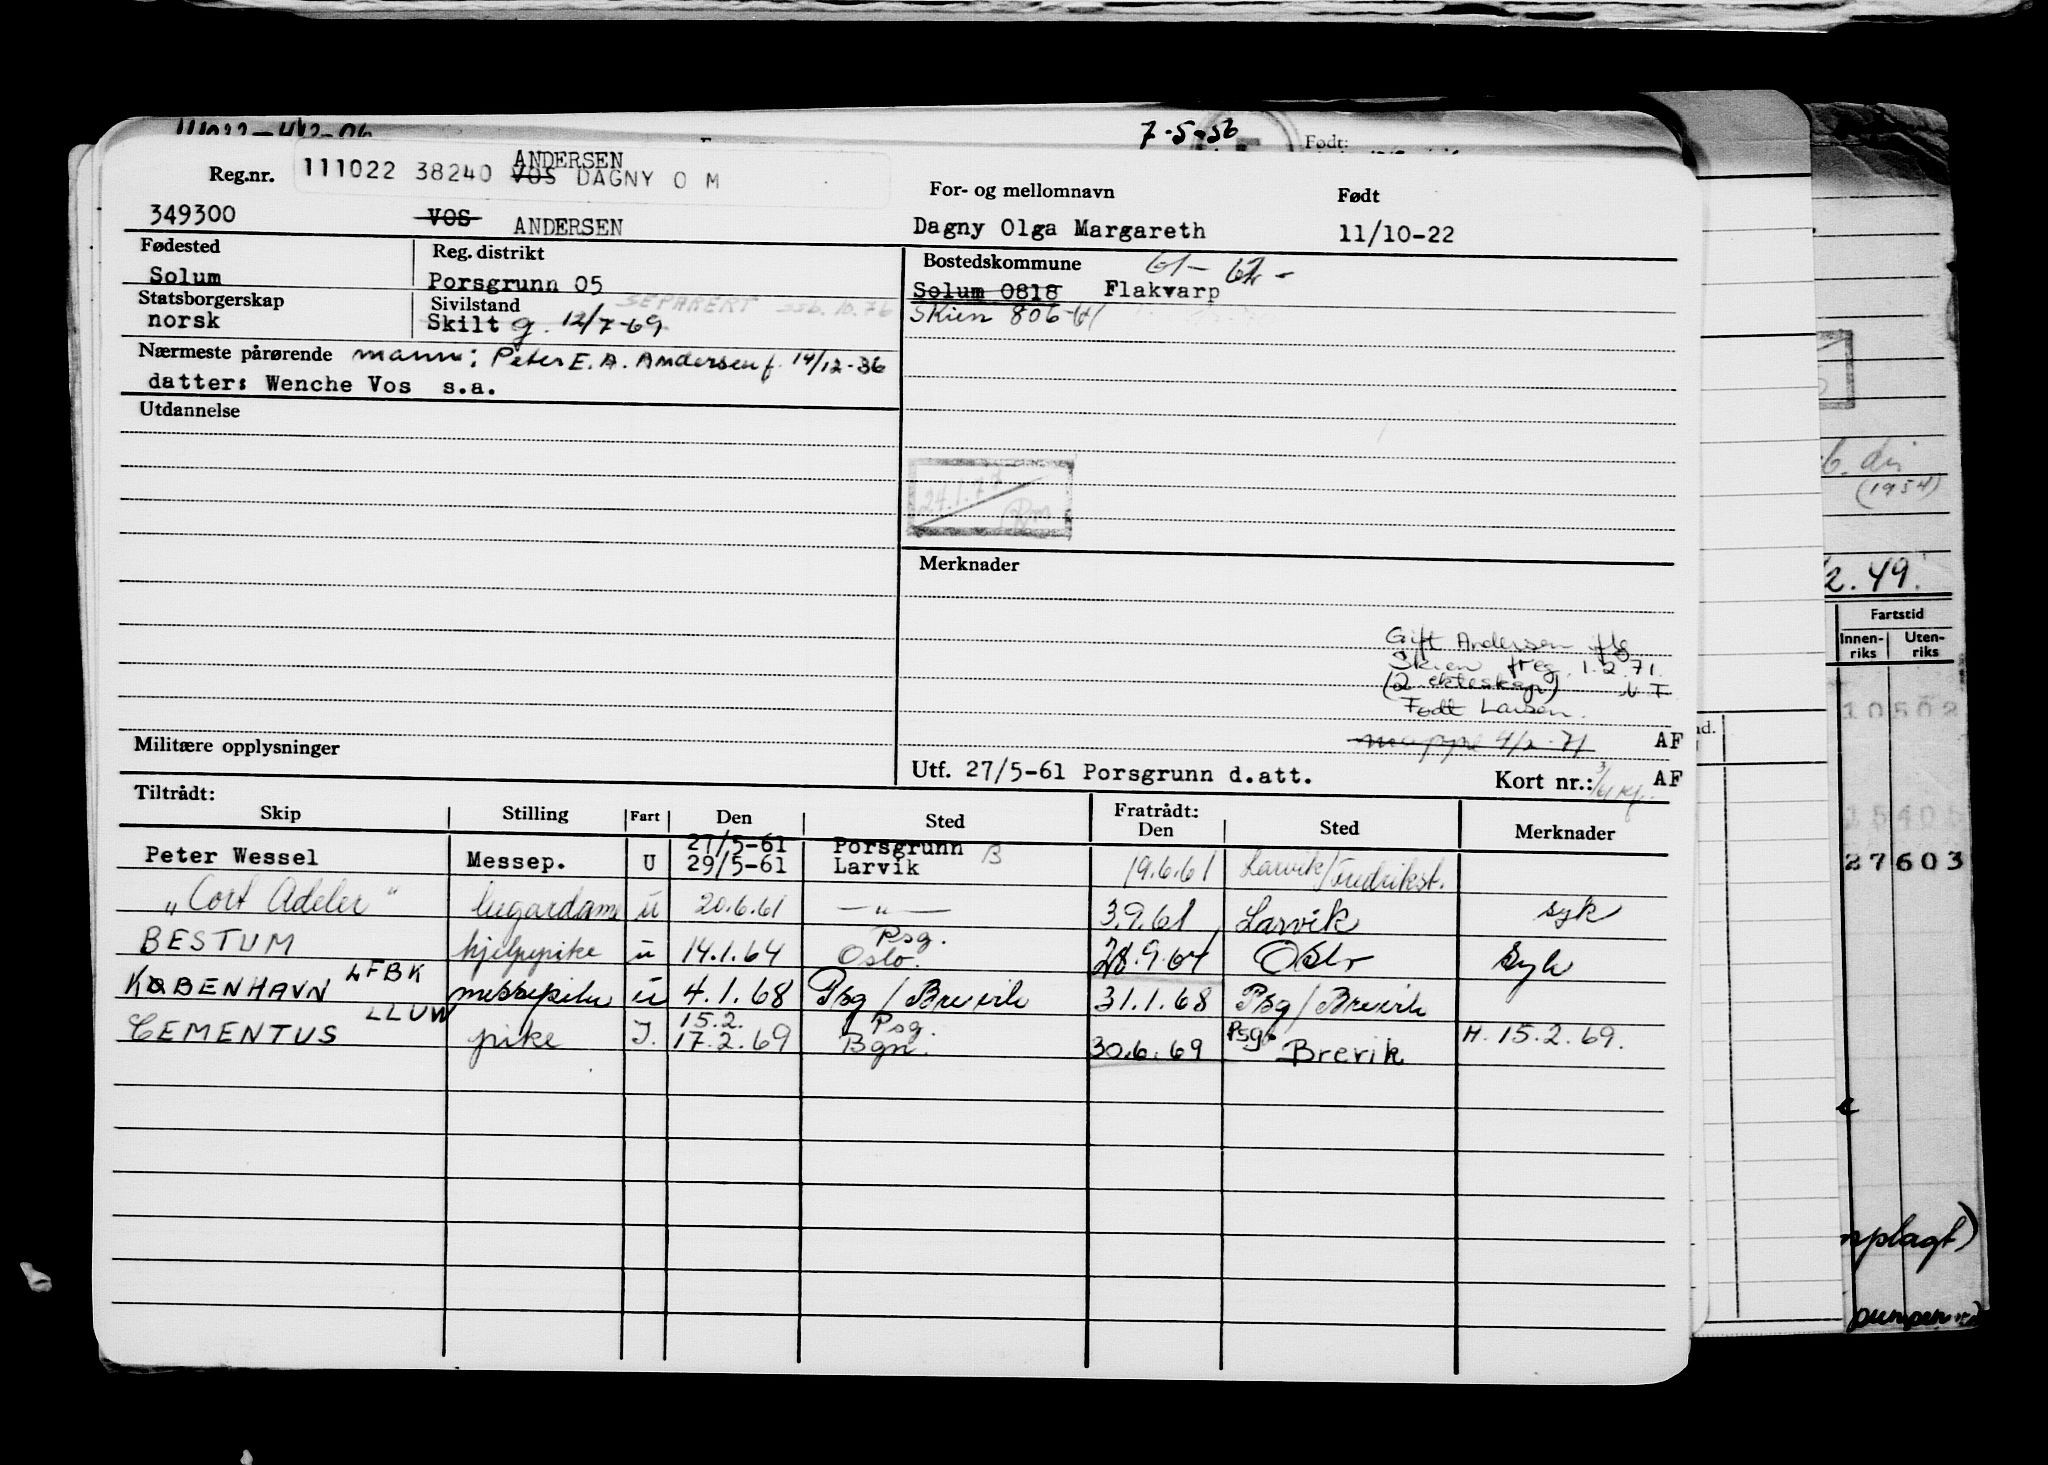 7-5-56
Født:
Reg.nr. 111022 38240 ANDERSEN
VOS DAGNY O M
For- og mellomnavn Født
349300 VOS ANDERSEN Dagny Olga Margareth 11/10-22
Fødested Reg. distrikt Bostedskommune 61- 62-
Solum Porsgrunn 05 Solum 0818 Flakvarp
Statsborgerskap Sivilstand SEPARERT SSB. 10.76 Skien 806-
norsk Skilt g. 12/7-69
Nærmeste pårørende mann: Peter E. A. Andersen f. 14/12-36
datter: Wenche Vos s.a.
Utdannelse
24.1.77
Merknader
Gift Andersen iflg
Skien freg. 1.2.71.
(2 ekteskap)
Født Larsen.
mappe 4/2-71 AF
Militære opplysninger
Utf. 27/5-61 Porsgrunn d.att. Kort nr.: AF
Tiltrådt: Fratrådt:
Skip Stilling Fart Den Sted Den Sted Merknader
27/5-61 Porsgrunn
Peter Wessel Messep. U 29/5-61 Larvik B 19.6.61 Larvik/Fredrikst.
"Cort Adeler" lugardame u 20.6.61 —"— 3.9.61 Larvik syk
BESTUM hjelpepike u 14.1.64 Psg. Oslo. 28.9.64 Oslo syk
KØBENHAVN LFBK messepike u 4.1.68 Psg/Brevik 31.1.68 Psg/Brevik
CEMENTUS LLUW pike I. 15.2. 17.2.69 Psg. Bgn. 30.6.69 Psg. Brevik H. 15.2.69.
(1954)
2.49.
Fartstid
Innen-riks Uten-riks
10502
25405
27603